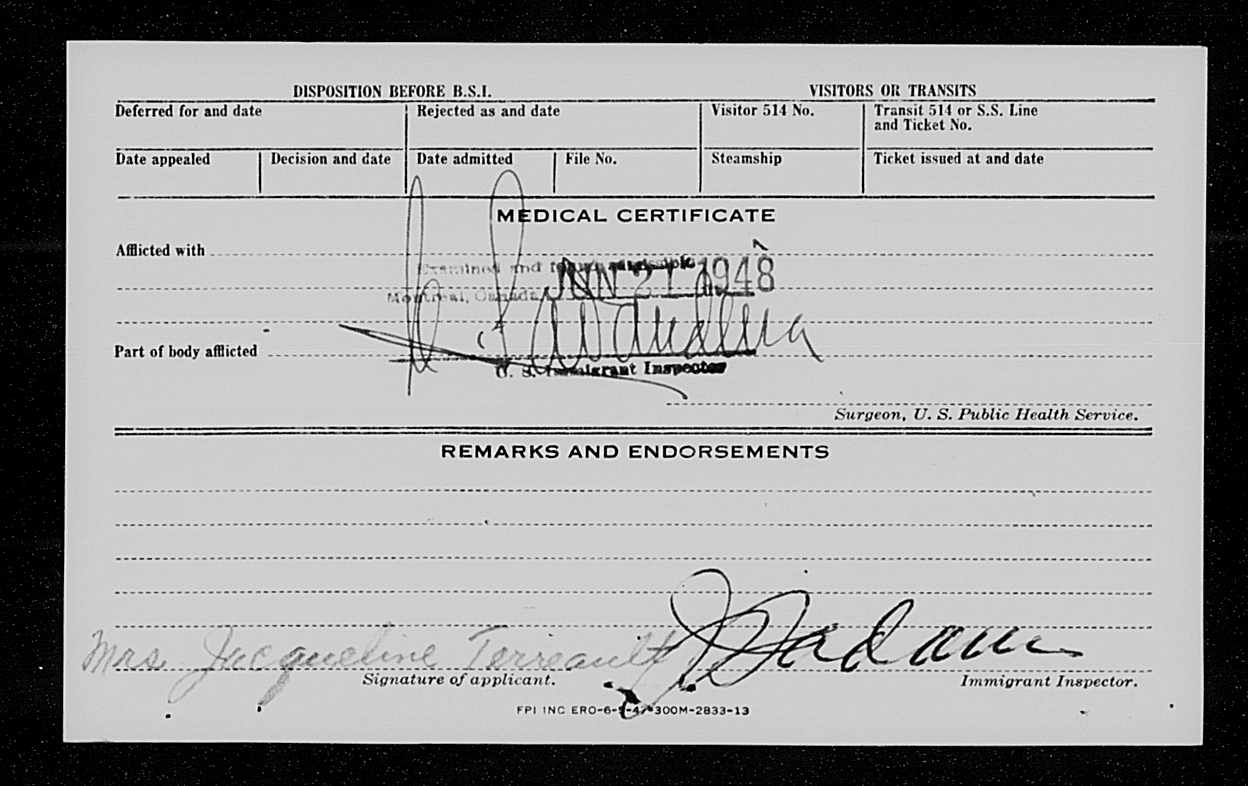 DISPOSITION BEFORE B.S.I. VISITORS OR TRANSITS
Deferred for and date Rejected as and date Visitor 514 No. Transit 514 or S.S. Line and Ticket No.
Date appealed Decision and date Date admitted File No. Steamship Ticket issued at and date
MEDICAL CERTIFICATE
Afflicted with
Examined and
JUN 21 1948
Montreal, Canada
Part of body afflicted
U. S. Immigrant Inspector
Surgeon, U. S. Public Health Service.
REMARKS AND ENDORSEMENTS
Mrs Jacqueline Terreault
Signature of applicant. Immigrant Inspector.
FPI INC ERO-6-5-47-300M-2833-13